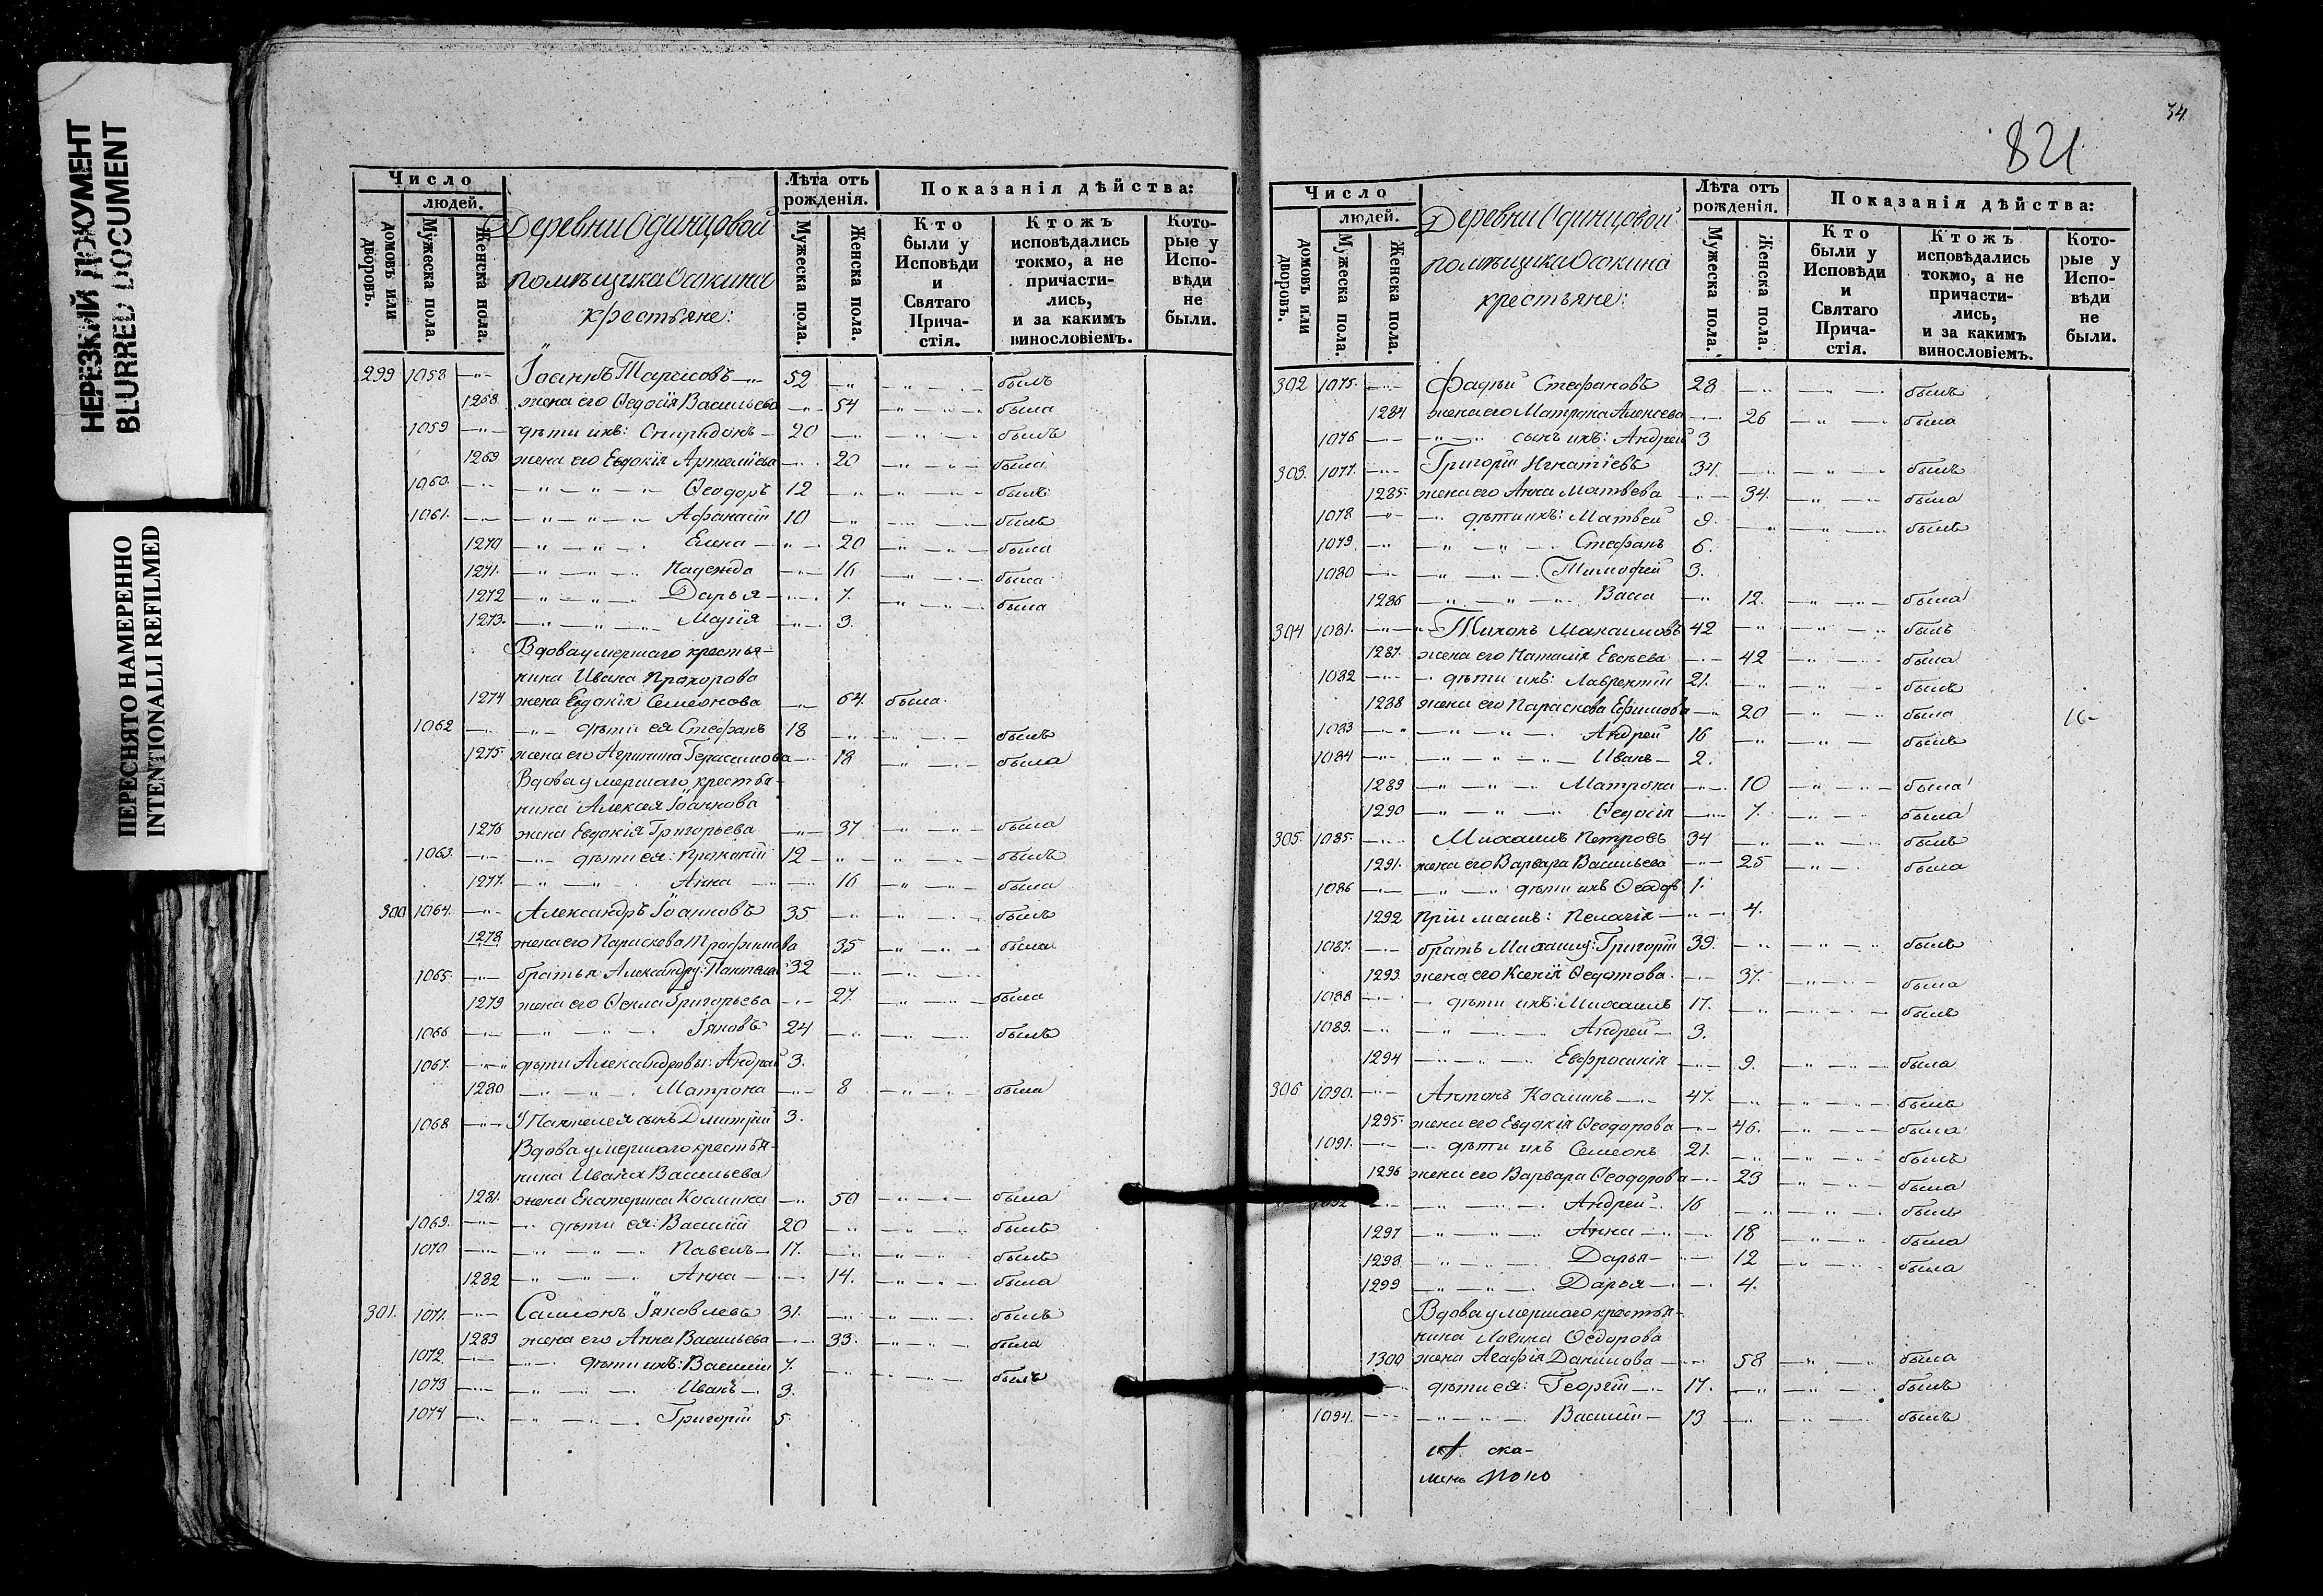 НЕРЕЗКИЙ ДОКУМЕНТ
BLURRED DOCUMENT
ПЕРЕСНЯТО НАМЕРЕННО
INTENTIONALLI REFILMED
Число
людей.
домовъ или дворовъ.
Мужеска пола.
Женска пола.
Деревни Одинцовой
помѣщика Осокина
крестьяне:
Лѣта отъ рожденія.
Мужеска пола.
Женска пола.
Показанія дѣйства:
Кто были у Исповѣди и Святаго Прича-стія.
Ктожъ исповѣдались токмо, а не причасти-лись, и за какимъ винословіемъ.
Кото-рые у Испо-вѣди не были.
299 1058 Іоаннъ Тарасовъ 52 былъ
1268 жена его Ѳедосія Васильева 54 была
1059 дѣти ихъ: Спиридонъ 20 былъ
1269 жена его Евдокія Артеміева 20 была
1060. Ѳеодоръ 12 былъ
1061. Афанасій 10 былъ
1270 Елена 20 была
1271. Надежда 16 была
1272 Дарья 7. была
1273. Марія 3.
Вдова умершаго крестья-
нина Ивана Прохорова
1274 жена Евдокія Семенова 64. была
1062 дѣти ея Стефанъ 18 былъ
1275 жена его Агрипина Герасимова 18 была
Вдова умершаго крестья-
нина Алексея Іоаннова
1276 жена Евдокія Григорьева 37 была
1063. дѣти ея: Прокопій 12 былъ
1277. Анна 16 была
300 1064. Александръ Іоанновъ 35 былъ
1278 жена его Параскева Трофимова 35 была
1065. братья Александру: Пантелей 32
1279 жена его Ѳекла Григорьева 27. была
1066 Іяковъ 24 былъ
1067. дѣти Александровы: Андрей 3.
1280 Матрона 8 была
1068 У Пантелея сынъ Дмитрій 3.
Вдова умершаго крестья-
нина Ивана Васильева
1281. жена Екатерина Космина 50 была
1069. дѣти ея: Василій 20 былъ
1070 Павелъ 17. былъ
1282 Анна 14. была
301. 1071. Самсонъ Іяковлевъ 31. былъ
1283 жена его Анна Васильева 33. была
1072. дѣти ихъ: Василій 7. былъ
1073 Иванъ 3.
1074 Григорій 5.
34.
821
Число
людей.
домовъ или дворовъ.
Мужеска пола.
Женска пола.
Деревни Одинцовой
помѣщика Осокина
крестьяне:
Лѣта отъ рожденія.
Мужеска пола.
Женска пола.
Показанія дѣйства:
Кто были у Исповѣди и Святаго Прича-стія.
Ктожъ исповѣдались токмо, а не причасти-лись, и за какимъ винословіемъ.
Кото-рые у Испо-вѣди не были.
302 1075. Фадѣй Стефановъ 28 былъ
1284 жена его Матрона Алексеева 26 была
1076 сынъ ихъ: Андрей 3
303. 1077. Григорій Игнатіевъ 34. былъ
1285. жена его Анна Матвѣева 34. была
1078 дѣти ихъ: Матвей 9. былъ
1079. Стефанъ 6.
1080 Тимофей 3.
1286 Васса 12. была
304 1081. Тихонъ Максимовъ 42 былъ
1287. жена его Наталія Евсѣева 42 была
1082 дѣти ихъ: Лаврентій 21. былъ
1288 жена его Параскова Ефимова 20 была 16-
1083 Андрей 16 былъ
1084 Иванъ 2.
1289 Матрона 10 была
1290 Ѳедосія 7. была
305. 1085. Михаилъ Петровъ 34 былъ
1291. жена его Варвара Васильева 25 была
1086 дѣти ихъ Ѳеодоръ 1.
1292 Пріимышъ: Пелагія 4.
1087. братъ Михаилу: Григорій 39. былъ
1293. жена его Ксенія Ѳедотова 37. была
1088 дѣти ихъ: Михаилъ 17. былъ
1089. Андрей 3.
1294 Евфросинія 9. была
306 1090. Антонъ Косминъ 47. былъ
1295. жена его Евдокія Ѳеодорова 46. была
1091. дѣти ихъ Семеонъ 21. былъ
1296 жена его Варвара Ѳеодорова 23 была
1092 Андрей 16 былъ
1297 Анна 18 была
1298 Дарья 12 была
1299 Дарья 4.
Вдова умершаго крестья-
нина Ѳедорова
1300 жена Агафія Данилова 58 была
дѣти ея: Георгій 17. былъ
1094. Василій 13 былъ